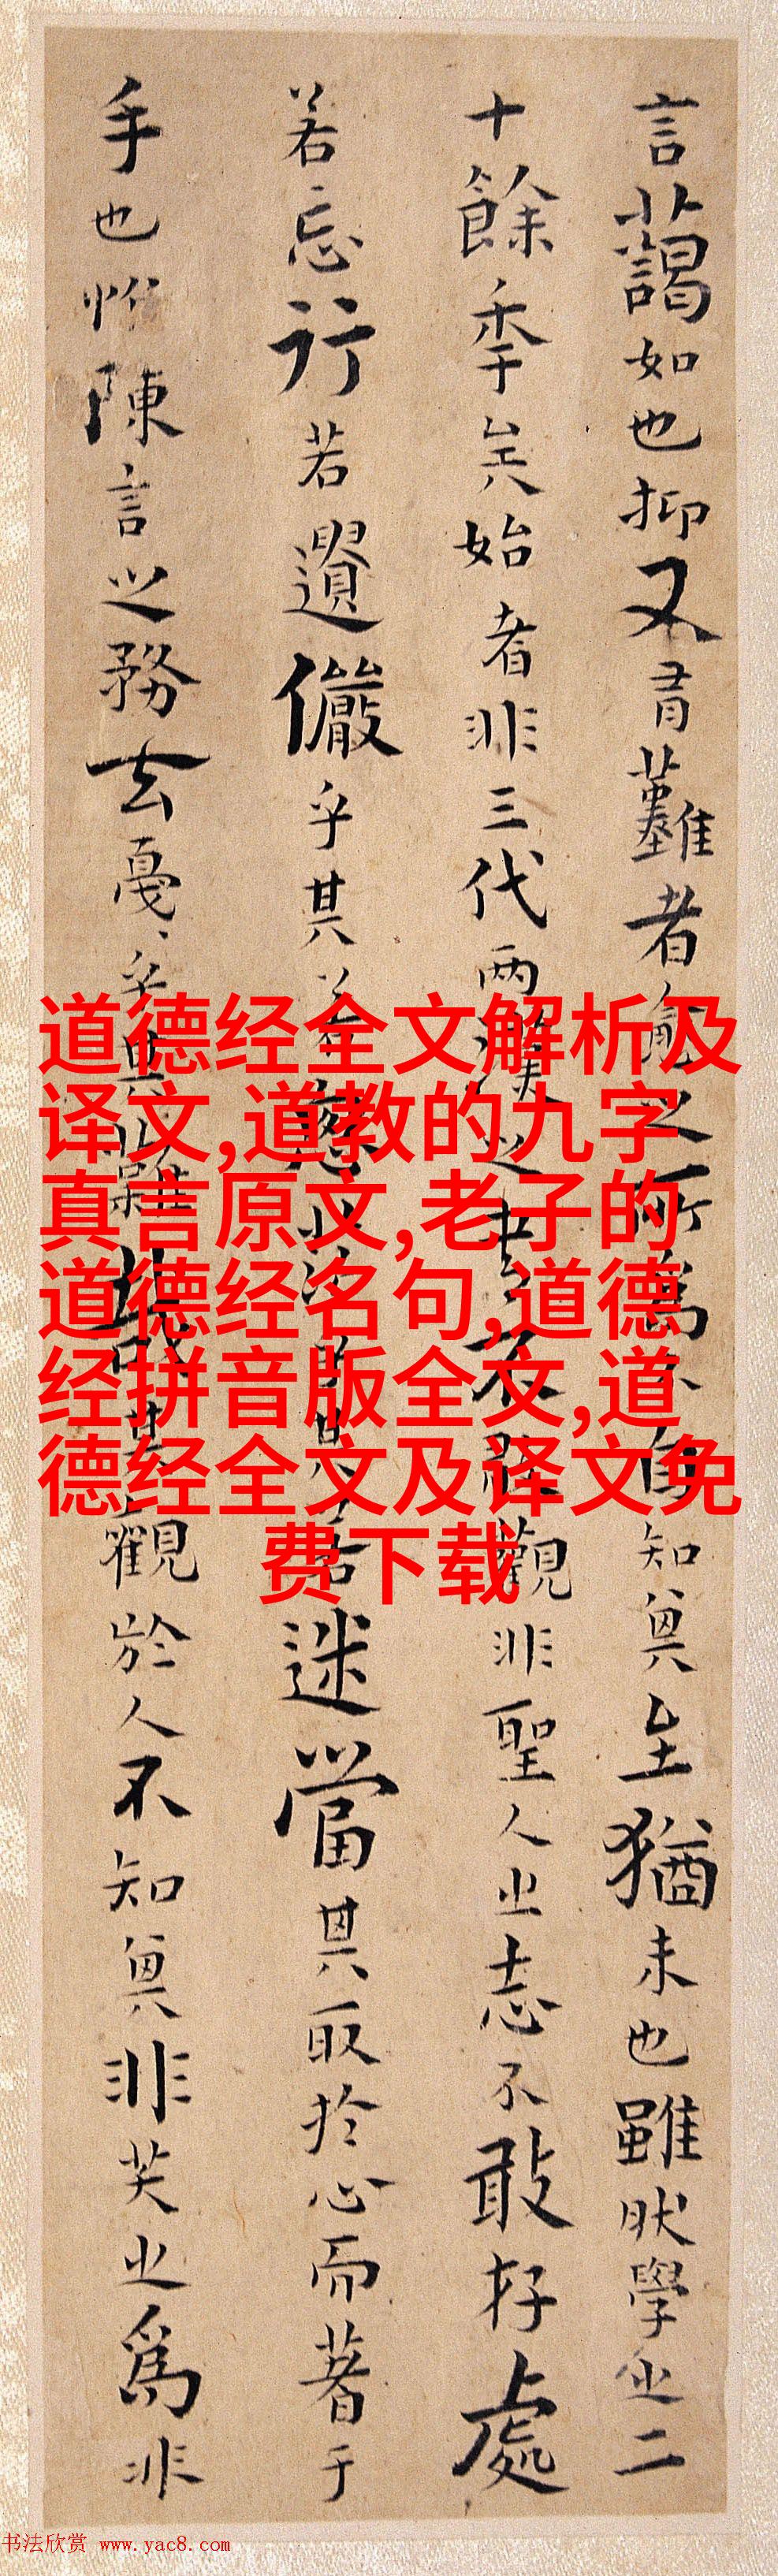 言藹如也抑又有難者愈之所為不自知其至猶未也雖然學之二
十餘年矣始者非三代兩漢之書不敢觀非聖人之志不敢存處
若忘行若遺儼乎其若思茫乎其若迷當其取於心而著于
手也惟陳言之務去戛戛乎其難哉其觀於人不知其非笑之為非
道德经全文解析及
译文,道教的九字
真言原文,老子的
道德经名句,道德
经拼音版全文,道
德经全文及译文免
费下载
书法欣赏 www.yac8.com